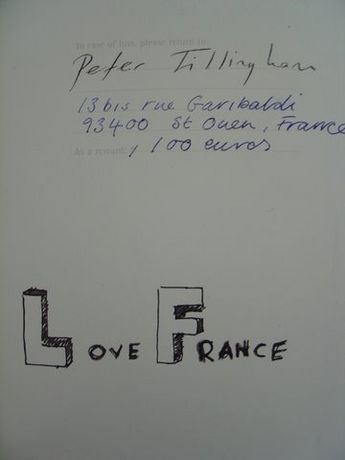 In case of loss, please return to:
Peter Tillingham
13bis rue Garibaldi
93400 St Ouen, France
As a reward: 100 euros
LOVE FRANCE